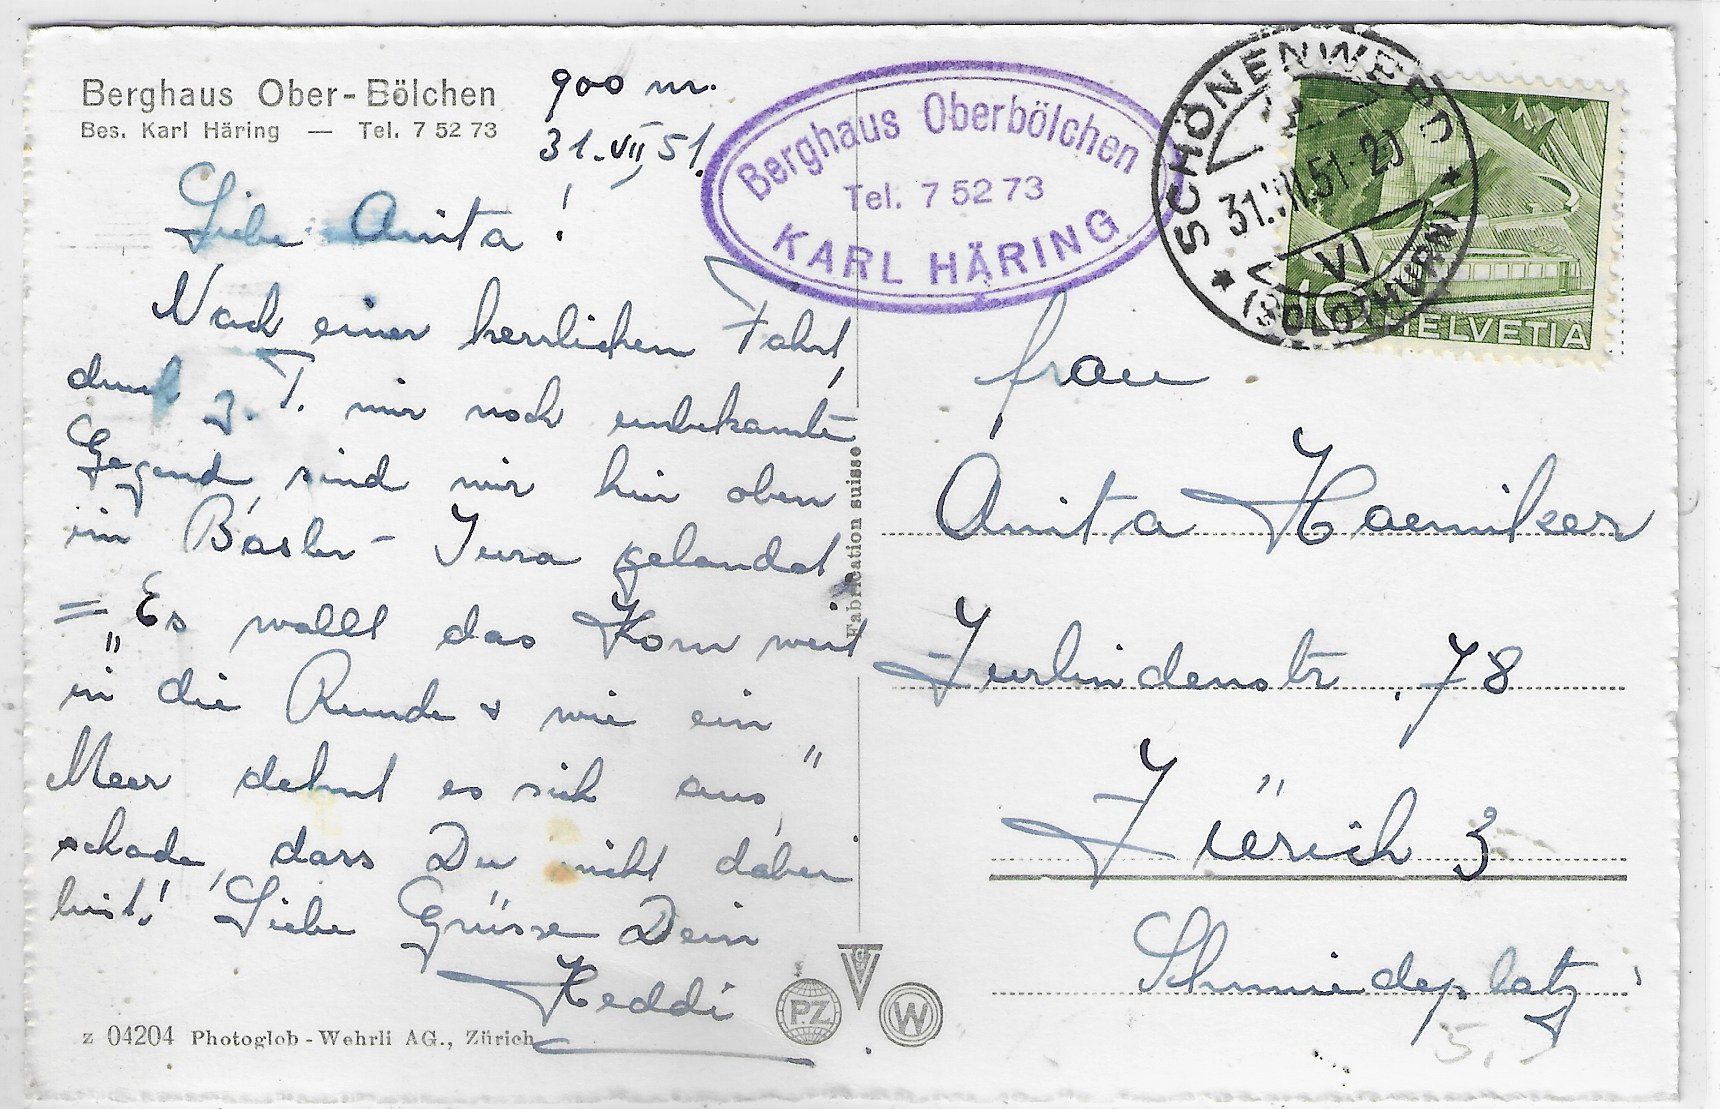 Berghaus Ober-Bölchen
Bes. Karl Häring — Tel. 7 52 73
900 m.
31. VII 51.
Liebe Anita!
Nach einer herrlichen Fahrt,
durch z. T. mir noch unbekannte
Gegend, sind wir hier oben
im Basler-Jura gelandet
= "Es wallt das Korn weit
in die Runde & wie ein
Meer dehnt es sich aus"
schade, dass Du nicht dabei
bist! Liebe Grüsse Dein
Heddi
z 04204 Photoglob-Wehrli AG., Zürich
Fabrication suisse
PZ
W
Berghaus Oberbölchen
Tel. 7 52 73
KARL HÄRING
SCHÖNENWERD
31.VII.51-20
VI
(SOLOTHURN)
10
HELVETIA
Frau
Anita Haeniker
Zurlindenstr. 78
Zürich 3
Schmiedeplatz